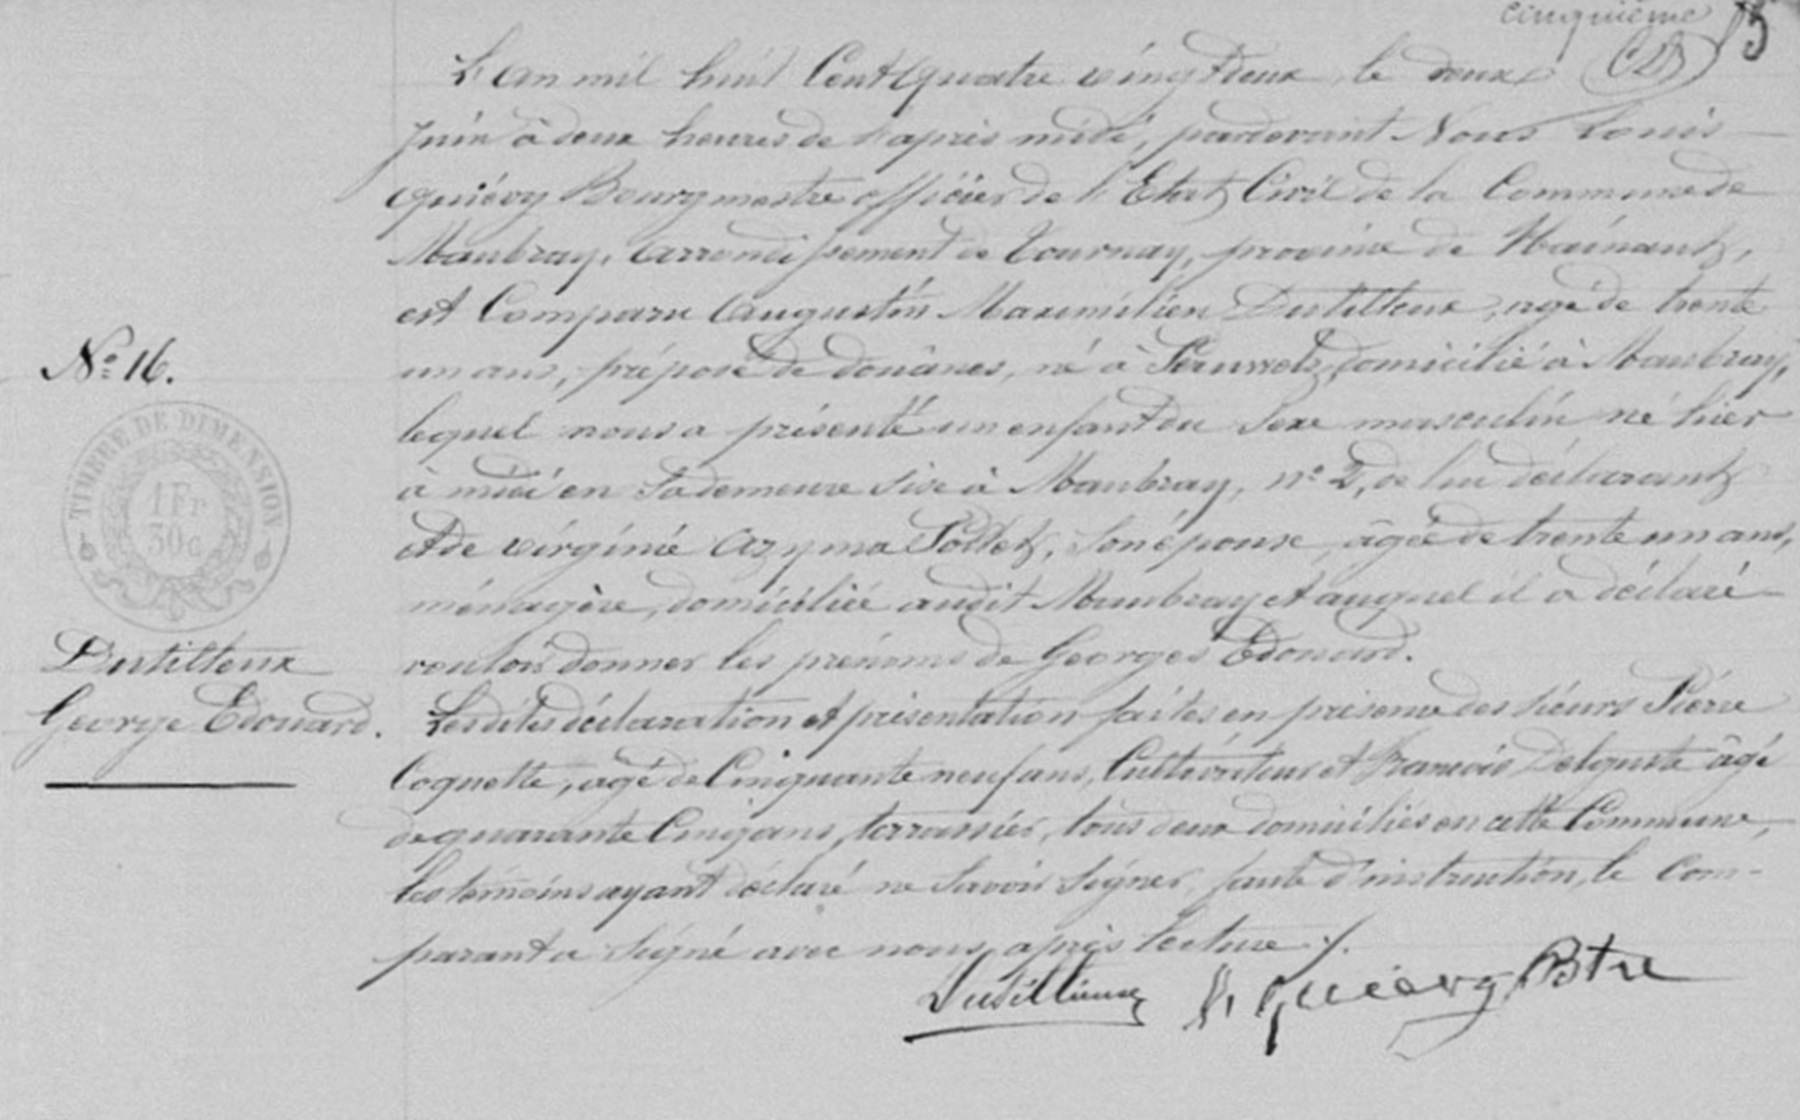 cinquième 5
L'an mil huit Cent quatre vingt deux, le deux
Juin à deux heures de l'après midi, pardevant Nous Louis
Quiévy Bourgmestre officier de l'Etat Civil de la Commune de
Maubray, arrondissement de Tournay, province de Hainaut,
est Comparu Augustin Maximilien Dutilleux, agé de trente
un ans, préposé de douânes, né à Péruwelz, domicilié à Maubray,
lequel nous a présenté un enfant du Sexe masculin né hier
à midi en sa demeure sise à Maubray, n° 2, de lui déclarant
et de Virginie Azyma Pottez, son épouse, âgée de trente un ans,
ménagère, domiciliée audit Maubray et auquel il a déclaré
vouloir donner les prénoms de Georges Edouard.
Lesdites déclaration et présentation faites en présence des sieurs Pierre
Coquette, agé de Cinquante neuf ans, Cultivateur et François Delguste âgé
de quarante Cinq ans, terrassier, tous deux domiciliés en cette Commune,
les témoins ayant déclaré ne Savoir Signer, faute d'instruction, le Com-
parant a Signé avec nous après lecture ./.
Dutillieux L. Quiévy Btre
N° 16.
TIMBRE DE DIMENSION
1Fr
30c
Dutilleux
George Edouard.